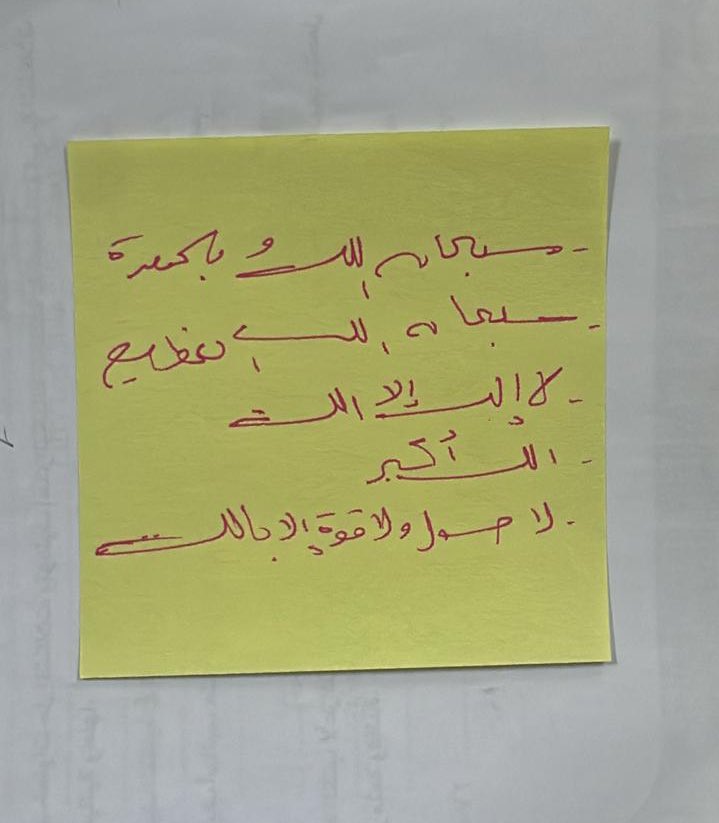 - سبحان الله و بحمدة
- سبحان الله العظيم
- لا إله إلا الله
- الله أكبر
- لا حول ولا قوة الا بالله